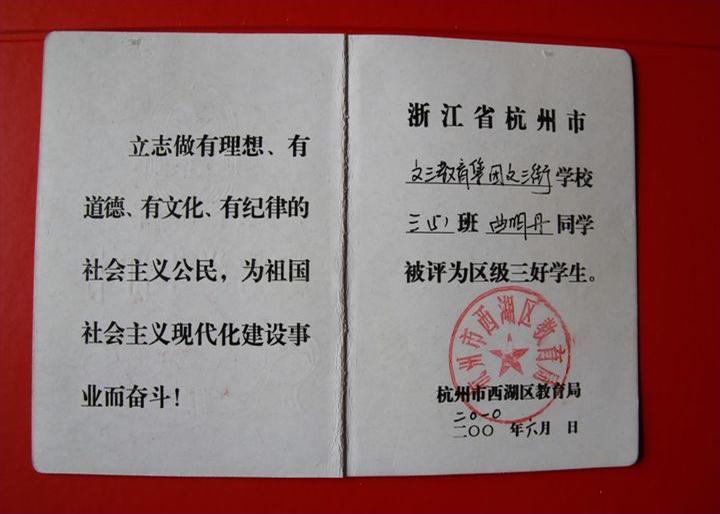 立志做有理想、有
道德、有文化、有纪律的
社会主义公民，为祖国
社会主义现代化建设事
业而奋斗！
浙江省杭州市
文三教育集团文三街学校
三(5)班 曲明丹同学
被评为区级三好学生。
杭州市西湖区教育局
杭州市西湖区教育局
二〇一〇
二〇〇 年六月 日